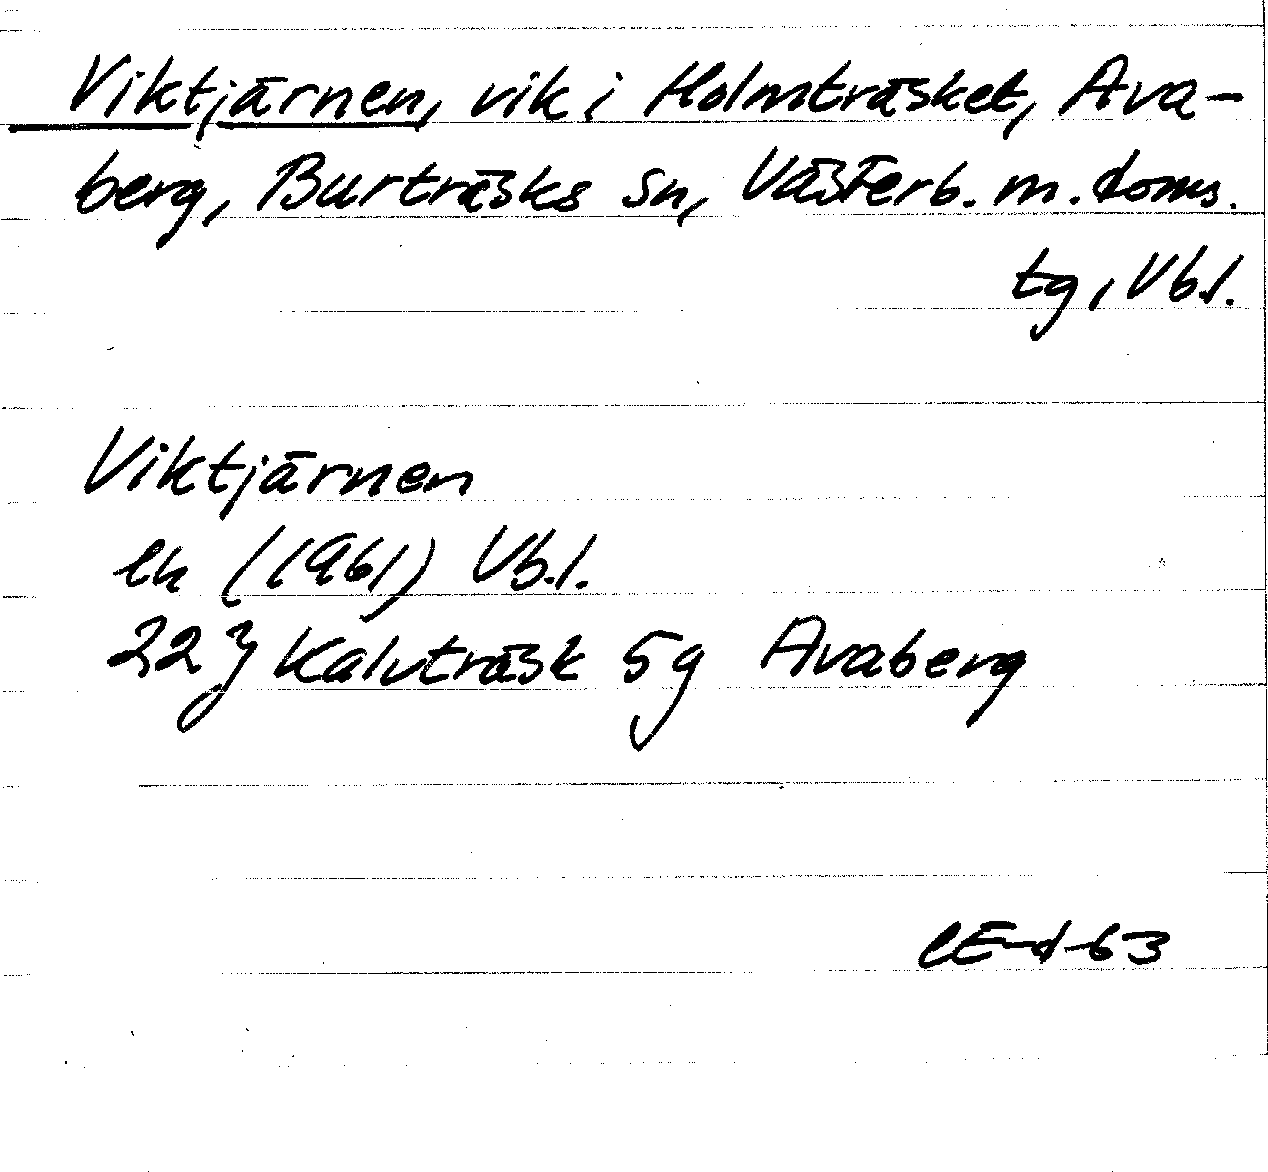 Viktjärnen, vik i Holmträsket, Ava-
berg, Burträsks sn, Västerb. m. doms.
tg, Vbl.
Viktjärnen
ek (1961) Vb.l.
22 J Kalvträsk 5g Avaberg
CE-d-63